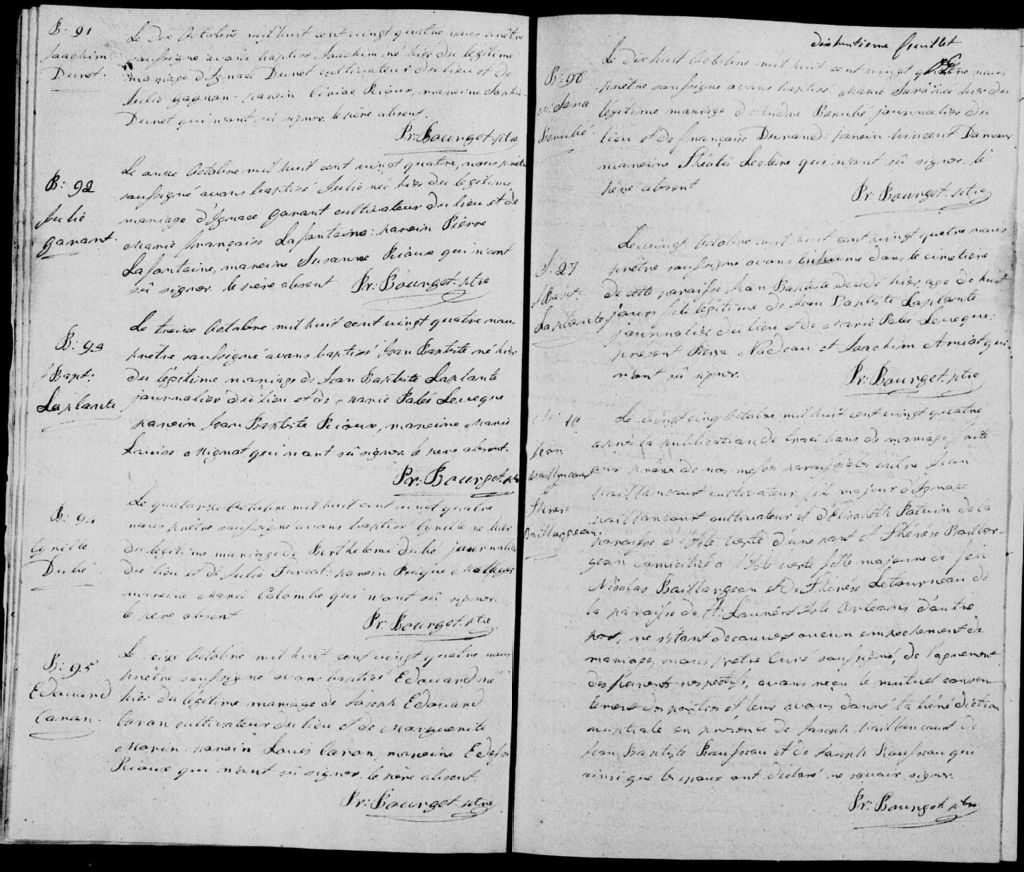 B: 91
Joachim
Dunet.
Le dix Octobre mil huit cent vingt quatre nous prêtre
soussigné avons baptisé Joachim né hier du légitime
mariage d'Ignace Dunet cultivateur du lieu et de
Julie Gagnon: parain Rioux, maraine Sophie
Dunet qui n'ont sû signer le père absent.
Pr: Bourget. ptre
B: 92
Julie
Garant.
Le onze Octobre mil huit cent vingt quatre, nous prêtre
soussigné avons baptisé Julie née hier du légitime
mariage d'Ignace Garant cultivateur du lieu et de
Marie françoise Lafontaine: parain Pierre
Lafontaine, maraine Susanne Rioux qui n'ont
sû signer le père absent Pr: Bourget ptre
B: 93
J Bapt:
Laplante
Le treize Octobre mil huit cent vingt quatre nous
prêtre soussigné avons baptisé Jean Baptiste né hier
du légitime mariage de Jean Baptiste Laplante
journalier du lieu et de Marie Leveque
parain Jean Baptiste Rioux, maraine Marie
Louise Mignot qui n'ont sû signer le père absent.
Pr: Bourget. ptre
B: 94
Cyrille
Dubé.
Le quatorze Octobre mil huit cent vingt quatre
nous prêtre soussigné avons baptisé Cyrille né hier
du légitime mariage de Barthelemi Dubé journalier
du lieu et de Julie Turcot: parain
maraine Marie Colombe qui n'ont sû signer
le père absent Pr: Bourget. ptre
B: 95
Edouard
Caron.
Le Octobre mil huit cent vingt quatre nous
prêtre soussigné avons baptisé Edouard né
hier du légitime mariage de Joseph Edouard
Caron cultivateur du lieu et de Marguerite
Morin: parain Louis Caron, maraine
Rioux qui n'ont sû signer le père absent.
Pr: Bourget. ptre
dixhuitieme feuillet
B: 96
M. Sara
Benubé
Le dix huit Octobre mil huit cent vingt quatre nous
prêtre soussigné avons baptisé Marie Sara née hier du
légitime mariage d'André Benubé journalier du
lieu et de françoise Durand: parain Vincent Damour
maraine Leclère qui n'ont sû signer le
père absent
Pr: Bourget. ptre
S. 27
J Bapt:
Laplante
Le vingt Octobre mil huit cent vingt quatre nous
prêtre soussigné avons inhumé dans le cimetière
de cette paroisse Jean Baptiste décédé hier, age de huit
jours fils légitime de Jean Baptiste Laplante
journalier du lieu et de Marie Levecque:
présent Pierre Nadeau et Joachim qui
n'ont sû signer.
Pr: Bourget. ptre
M: 10
Jean
Vaillancour
Therese
Baillargeon
Le vingt cinq Octobre mil huit cent vingt quatre
après la publication de trois bans de mariage faite
aux prones de nos messes paroissiales entre Jean
Vaillancourt cultivateur fils majeur d'Ignace
Vaillancourt cultivateur et d'Elisabeth de la
paroisse de l'Isle verte d'une part et Thérèse Baillar-
geon domiciliée à l'Isle verte fille majeure de feu
Nicolas Baillargeon et de Therèse Letourneau de
la paroisse de St. Laurent Isle Orleans d'autre
part, ne s'étant découvert aucun empechement de
mariage, nous prêtre Curé soussigné, de l'agrement
des Parents respectifs, avons reçu le mutuel consen-
tement des parties et leur avons donné la bénédiction
nuptiale en présence de Joseph Vaillancourt de
Jean Baptiste et de Joseph qui
ainsi que les epoux ont déclaré ne savoir signer.
Pr: Bourget. ptre